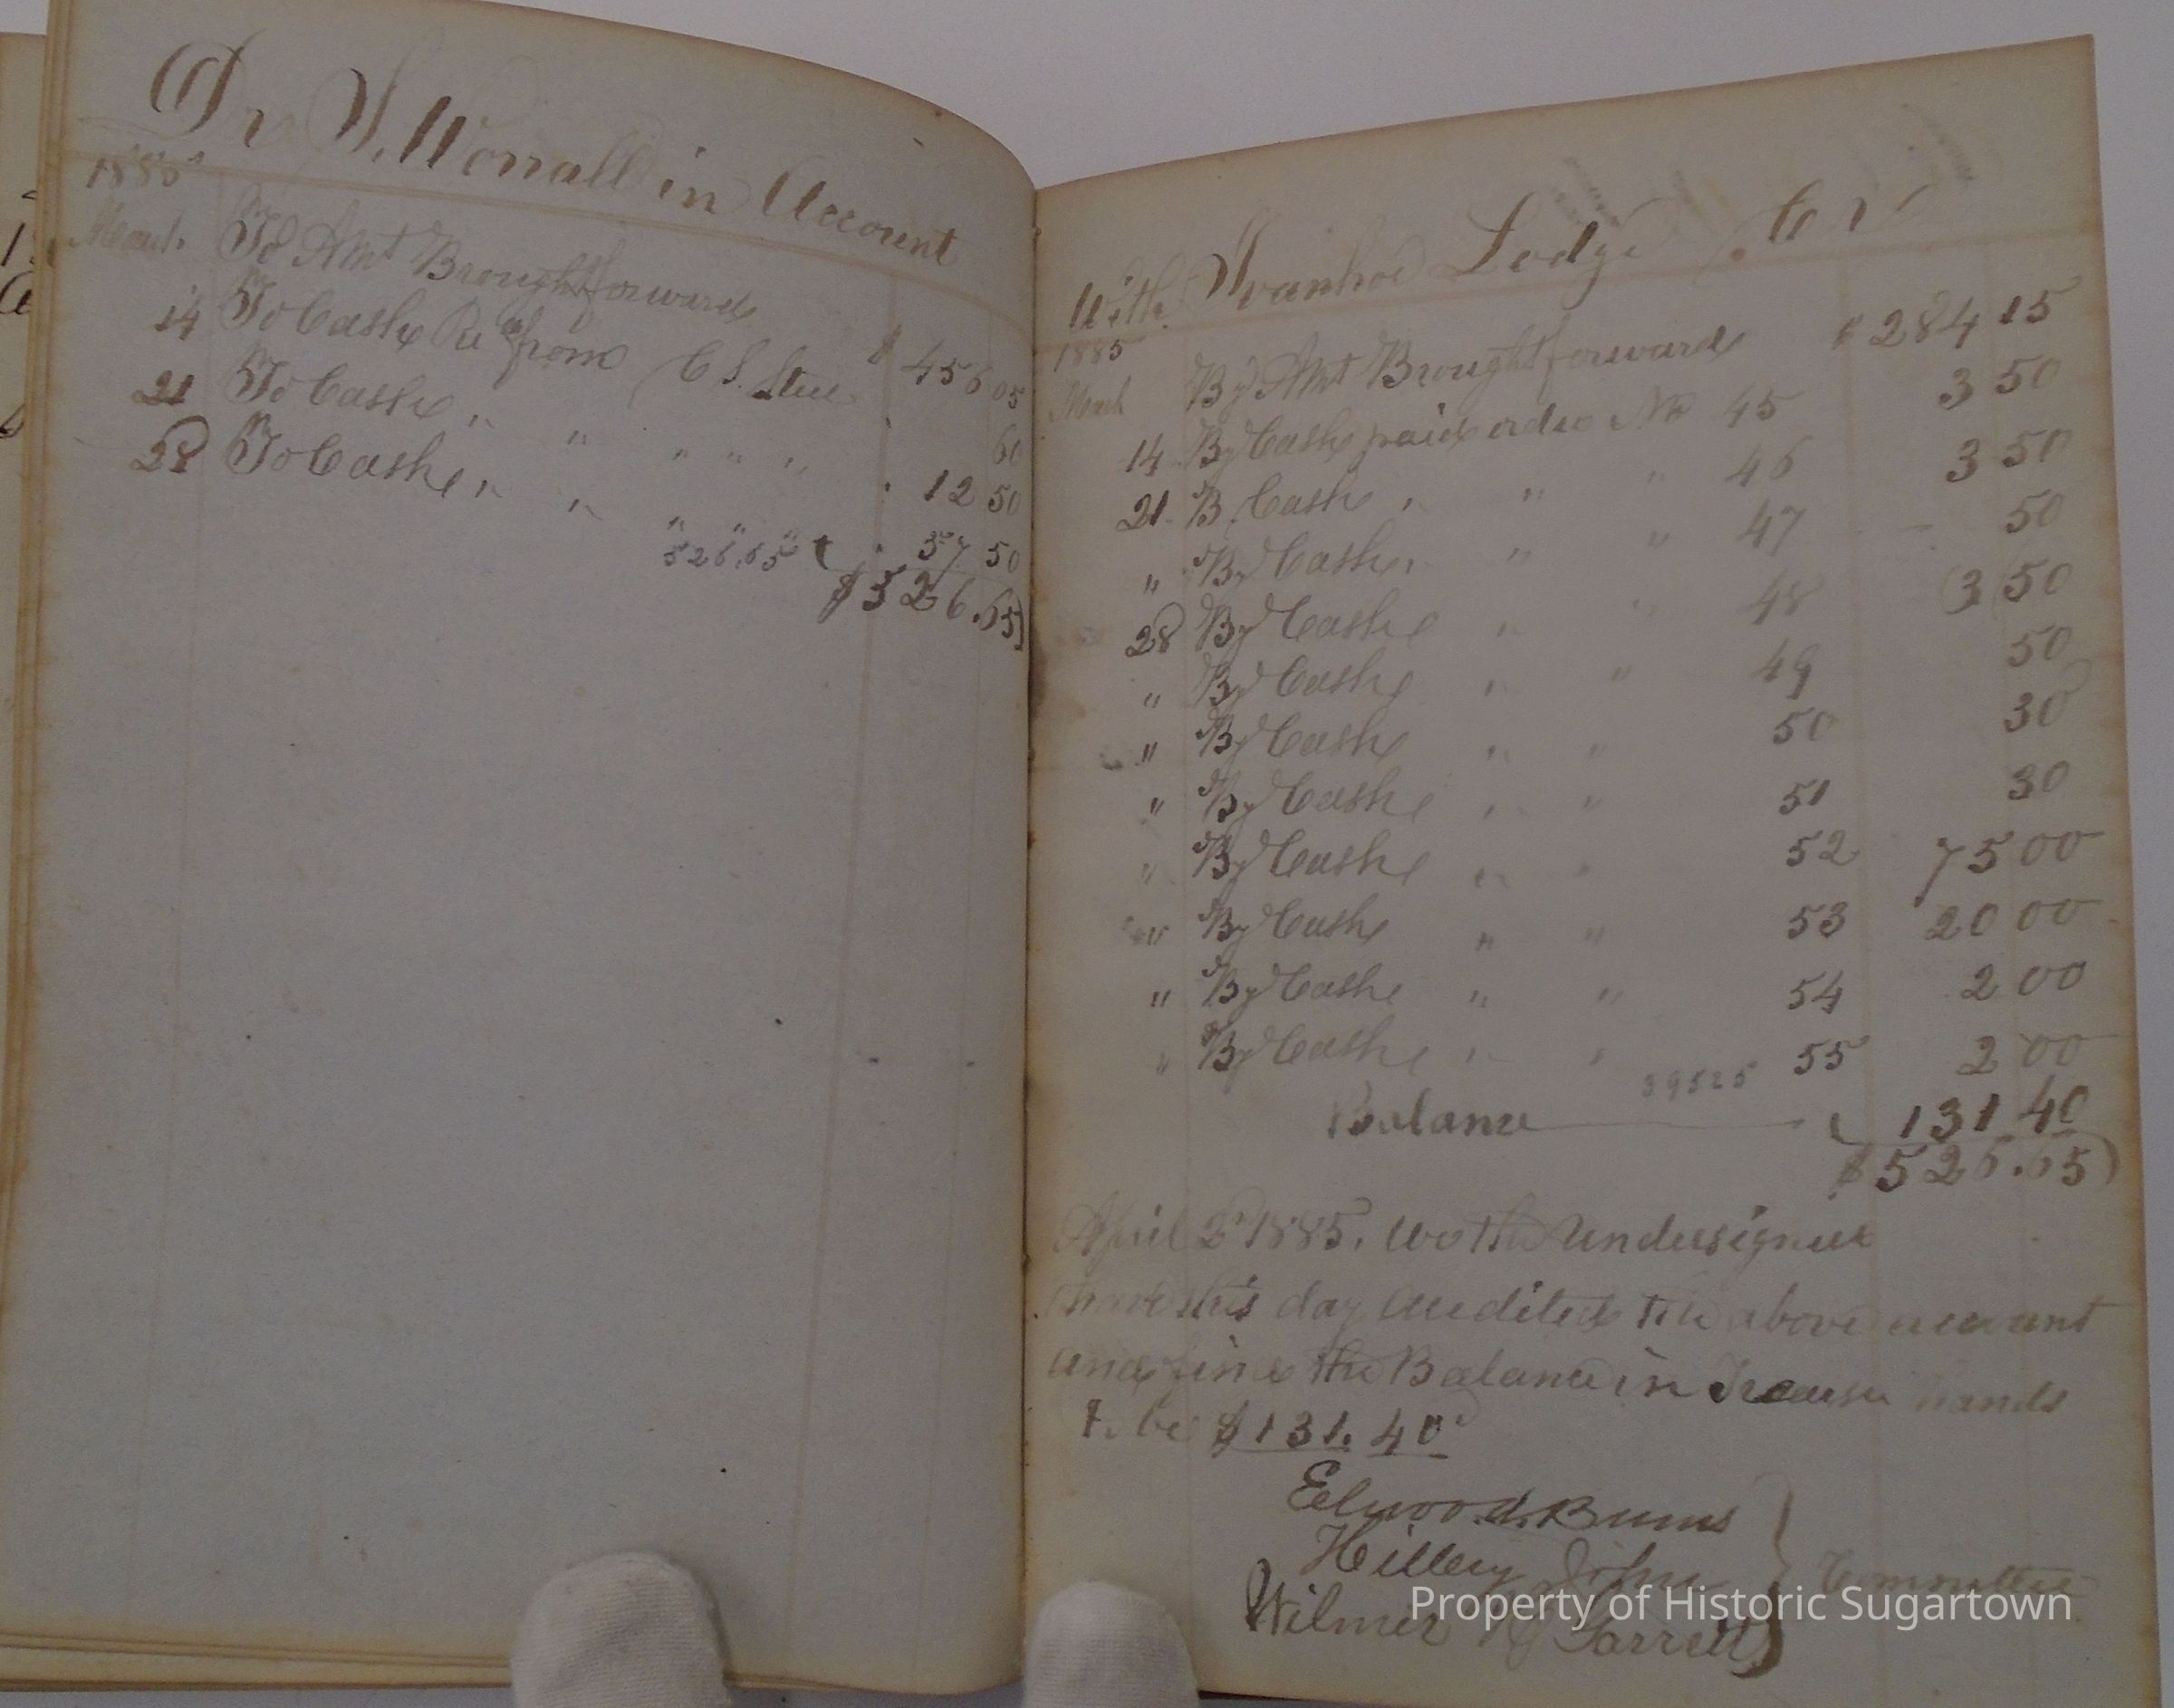 Dr I. Worrall in Account
1885
March To Amt Brought forward $ 456 05
14 To Cash Recd from C S. Steel 60
21 To Cash " " " " " 12 50
28 To Cash " " " " " 57 50
526.65 $526.65
With Ivanhoe Lodge Cr
1885
March By Amt Brought forward $ 284 15
14 By Cash paid order No 45 3 50
21 By Cash " " " 46 3 50
" By Cash " " " 47 50
28 By Cash " " 48 3 50
" By Cash " " 49 50
" By Cash " " 50 30
" By Cash " " 51 30
" By Cash " " 52 75 00
" By Cash " " 53 20 00
" By Cash " " 54 2 00
" By Cash " " 55 2 00
39525
Balance 131 40
$526.65
April 2d 1885. We the undersigned
have this day audited the above account
and find the Balance in Treasu hands
to be $131.40
Elwood Burns
Hillery John
Wilmer Garrett
Committee
Property of Historic Sugartown